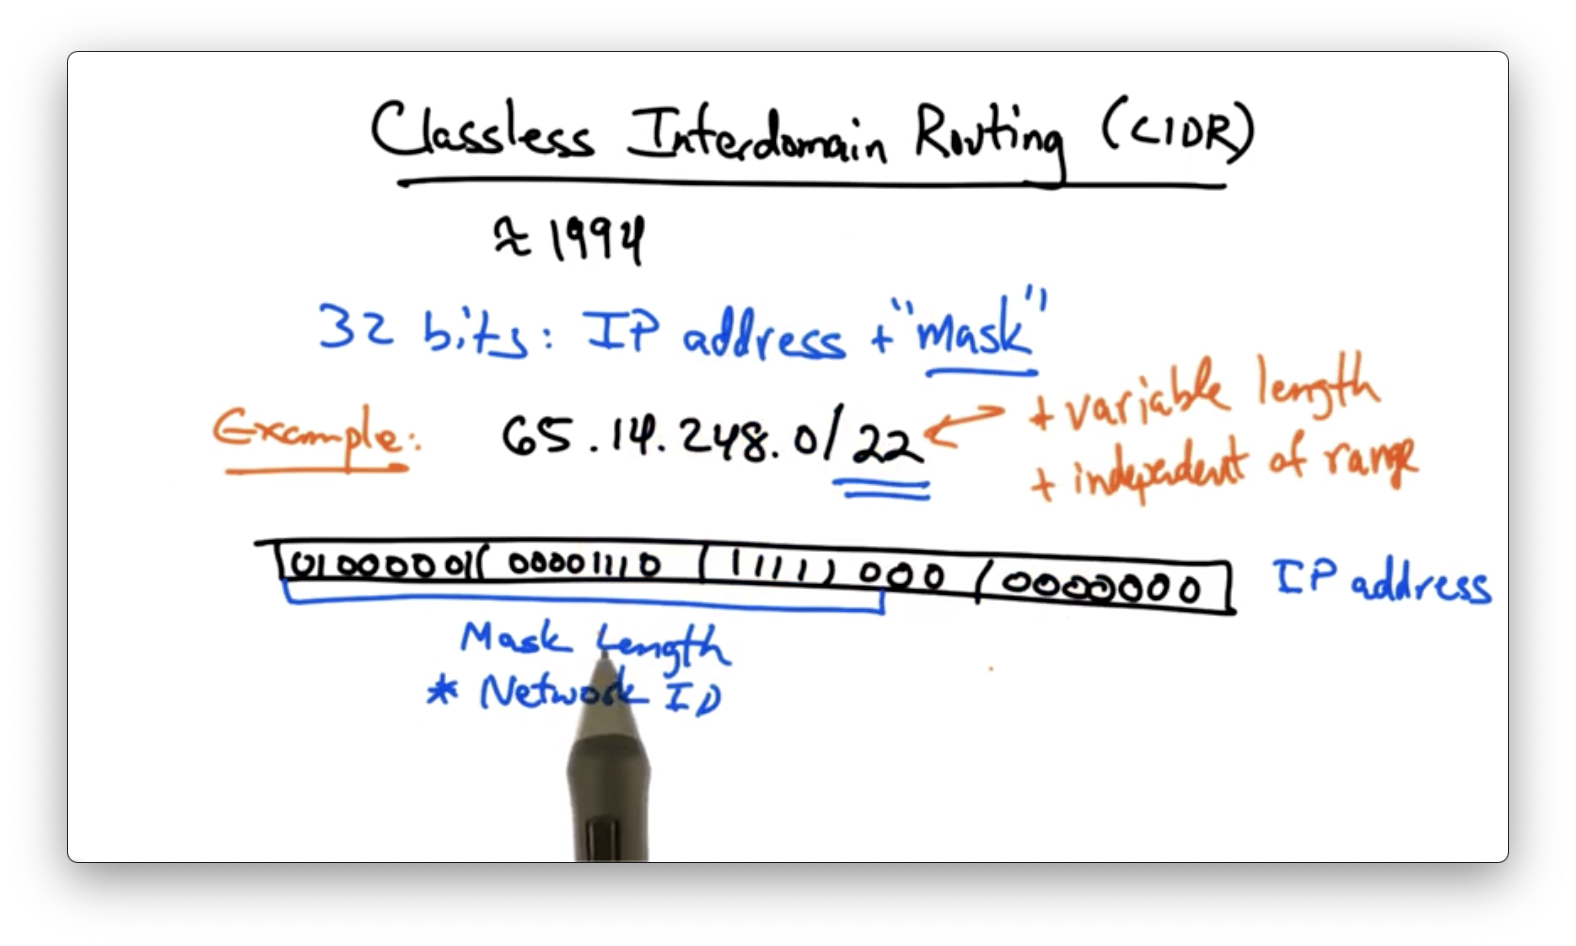 Classless Interdomain Routing (CIDR)
≈ 1994
32 bits: IP address + "mask"
Example: 65.14.248.0/22
+ variable length
+ independent of range
01000001( 00001110 ( 11111 000 / 0000000 IP address
Mask Length
* Network ID